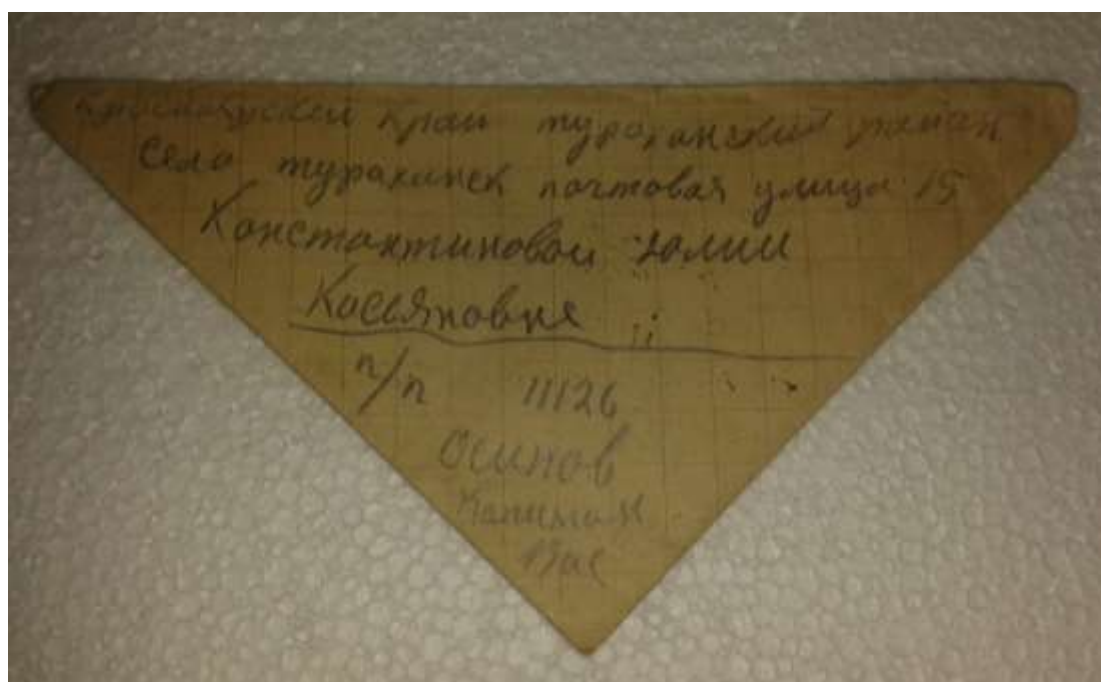 Красноярский край туруханский район
село туруханск почтовая улица 15
Константиновой юлии
Кассяновне
п/п 11126
Осипов